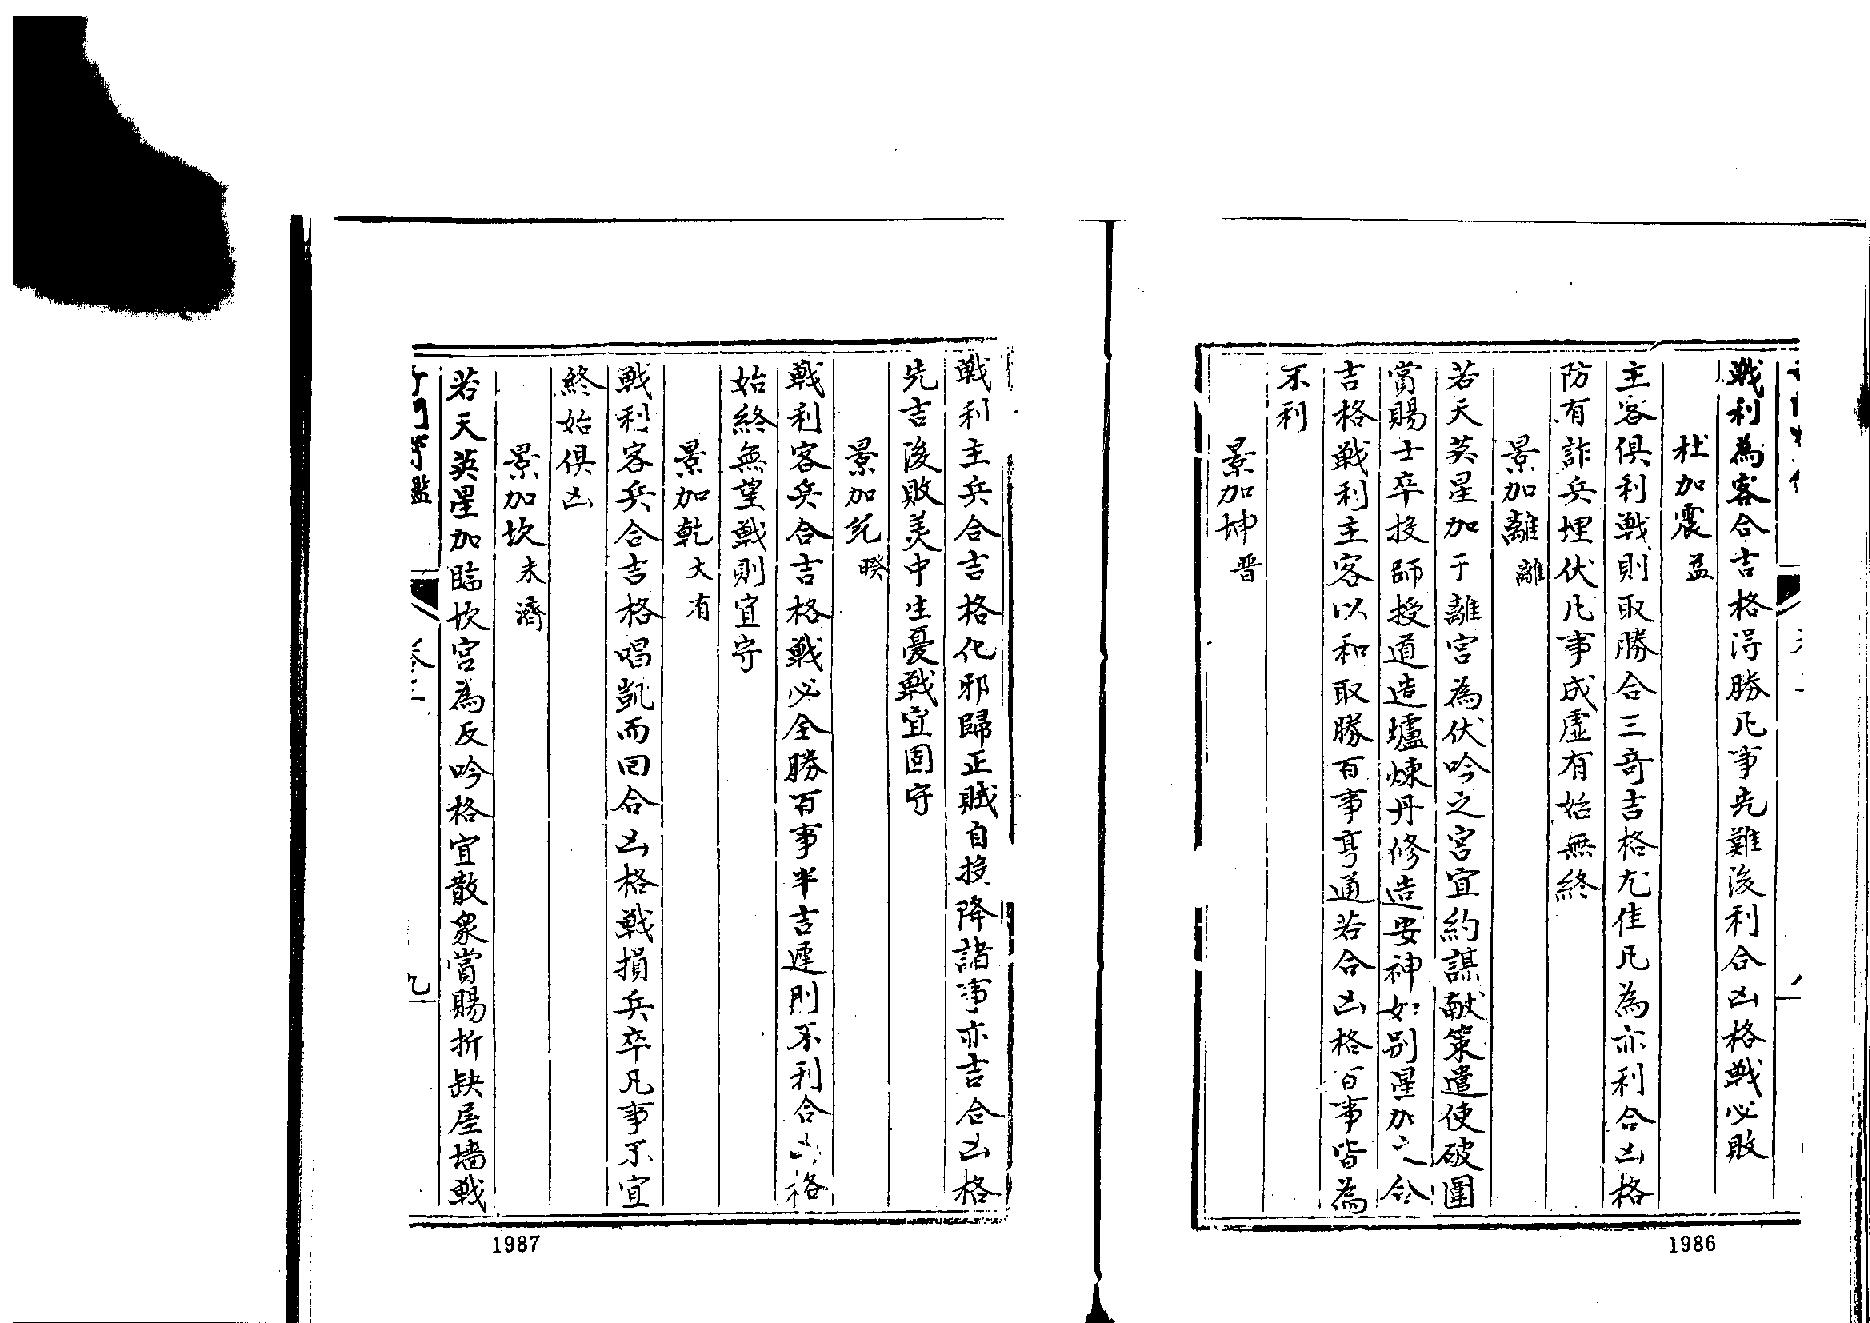 戰利為客合吉格得勝凡事先難後利合凶格戰必敗
杜加震益
主客俱利戰則取勝合三奇吉格尤佳凡為亦利合凶格
防有詐兵埋伏凡事成虛有始無終
景加離離
若天英星加于離宮為伏吟之宮宜約謀献策遣使破圍
賞賜士卒投師授道造壚煉丹修造安神如別星加之合
吉格戰利主客以和取勝百事亨通若合凶格百事皆為
不利
景加坤晋
1986
戰利主兵合吉格化邪歸正賊自投降諸事亦吉合凶格
先吉後敗美中生憂戰宜固守
景加兌睽
戰利客兵合吉格戰必全勝百事半吉遲則不利合凶格
始終無望戰則宜守
景加乾大有
戰利客兵合吉格唱凱而回合凶格戰損兵卒凡事不宜
終始俱凶
景加坎未濟
若天英星加臨坎宮為反吟格宜散衆賞賜折缺屋墻戰
九
1987